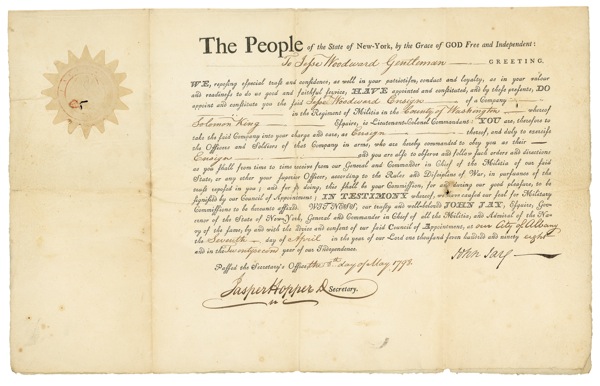 The People of the State of New-York, by the Grace of GOD Free and Independent:
To Jesse Woodward Gentleman GREETING.
WE, reposing especial trust and confidence, as well in your patriotism, conduct and loyalty, as in your valour
and readiness to do us good and faithful service, HAVE appointed and constituted, and by these presents, DO
appoint and constitute you the said Jesse Woodward Ensign of a Company
in the Regiment of Militia in the County of Washington whereof
Solomon King Esquire, is Lieutenant-Colonel Commandant: YOU are, therefore to
take the said Company into your charge and care, as Ensign thereof, and duly to exercise
the Officers and Soldiers of that Company in arms, who are hereby commanded to obey you as their
Ensign and you are also to observe and follow such orders and directions
as you shall from time to time receive from our General and Commander in Chief of the Militia of our said
State, or any other your superior Officer, according to the Rules and Discipline of War, in pursuance of the
trust reposed in you; and for so doing, this shall be your Commission, for and during our good pleasure, to be
signified by our Council of Appointment; IN TESTIMONY whereof, we have caused our seal for Military
Commissions to be hereunto affixed. WITNESS, our trusty and wellbeloved JOHN JAY, Esquire, Gover-
nor of the State of New-York, General and Commander in Chief of all the Militia, and Admiral of the Na-
vy of the same, by and with the advice and consent of our said Council of Appointment, at our City of Albany
the Seventh day of April in the year of our Lord one thousand seven hundred and ninety eight
and in the Twenty second year of our Independence.
Passed the Secretary's Office the 8th day of May 1798.
John Jay
Jasper Hopper D. Secretary.